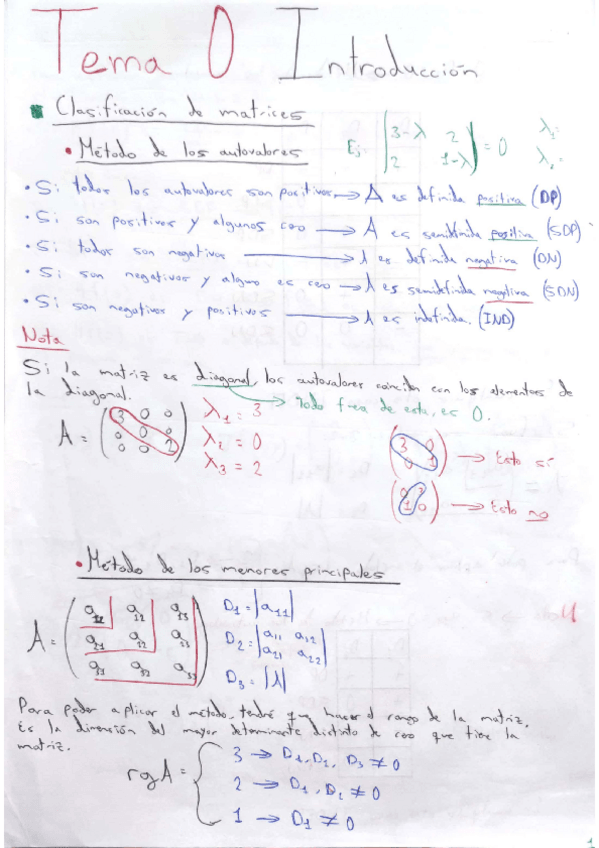 Tema 0 Introducción
Clasificación de matrices
• Método de los autovalores
Ej |3-λ 2 / 2 1-λ| = 0 λ₁= λ₂=
• Si todos los autovalores son positivos → A es definida positiva (DP)
• Si son positivos y algunos cero → A es semidefinida positiva (SDP)
• Si todos son negativos → A es definida negativa (DN)
• Si son negativos y alguno es cero → A es semidefinida negativa (SDN)
• Si son negativos y positivos → A es indefinida. (IND)
Nota
Si la matriz es diagonal, los autovalores coinciden con los elementos de
la diagonal.
→ Todo fuera de esta, es 0.
A = (3 0 0 / 0 0 0 / 0 0 2) λ₁ = 3
λ₂ = 0
λ₃ = 2
(3 0 / 0 1) → Esto sí
(0 / 1 0) → Esto no
• Método de los menores principales
A = (a₁₁ a₁₂ a₁₃ / a₂₁ a₂₂ a₂₃ / a₃₁ a₃₂ a₃₃)
D₁ = |a₁₁|
D₂ = |a₁₁ a₁₂ / a₂₁ a₂₂|
D₃ = |A|
Para poder aplicar el método, tendré que hacer el rango de la matriz,
es la dimensión del mayor determinante distinto de cero que tiene la
matriz.
rgA = { 3 → D₁, D₂, D₃ ≠ 0
2 → D₁, D₂ ≠ 0
1 → D₁ ≠ 0
1